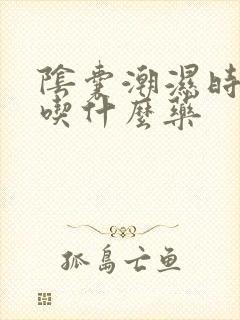 陰囊潮濕時
喫什麼藥
孤島亡魚